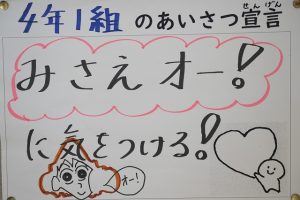 4年1組のあいさつ宣言
せんげん
みさえオー!
に気をつける!
オー!